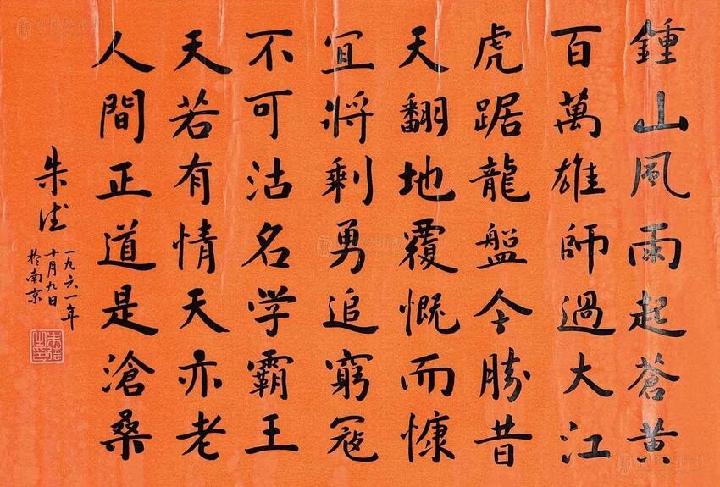 鍾山風雨起蒼黄
百萬雄師過大江
虎踞龍盤今勝昔
天翻地覆慨而慷
宜將剩勇追窮寇
不可沽名学霸王
天若有情天亦老
人間正道是滄桑
朱德
一九六一年
十月九日
於南京